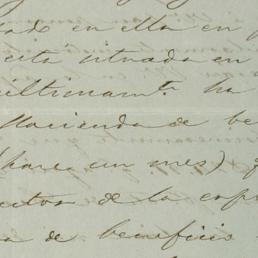 en ella en
está situada en
ultimamte ha
Hacienda de be
(hace un mes) q
de la esp
a de beneficio